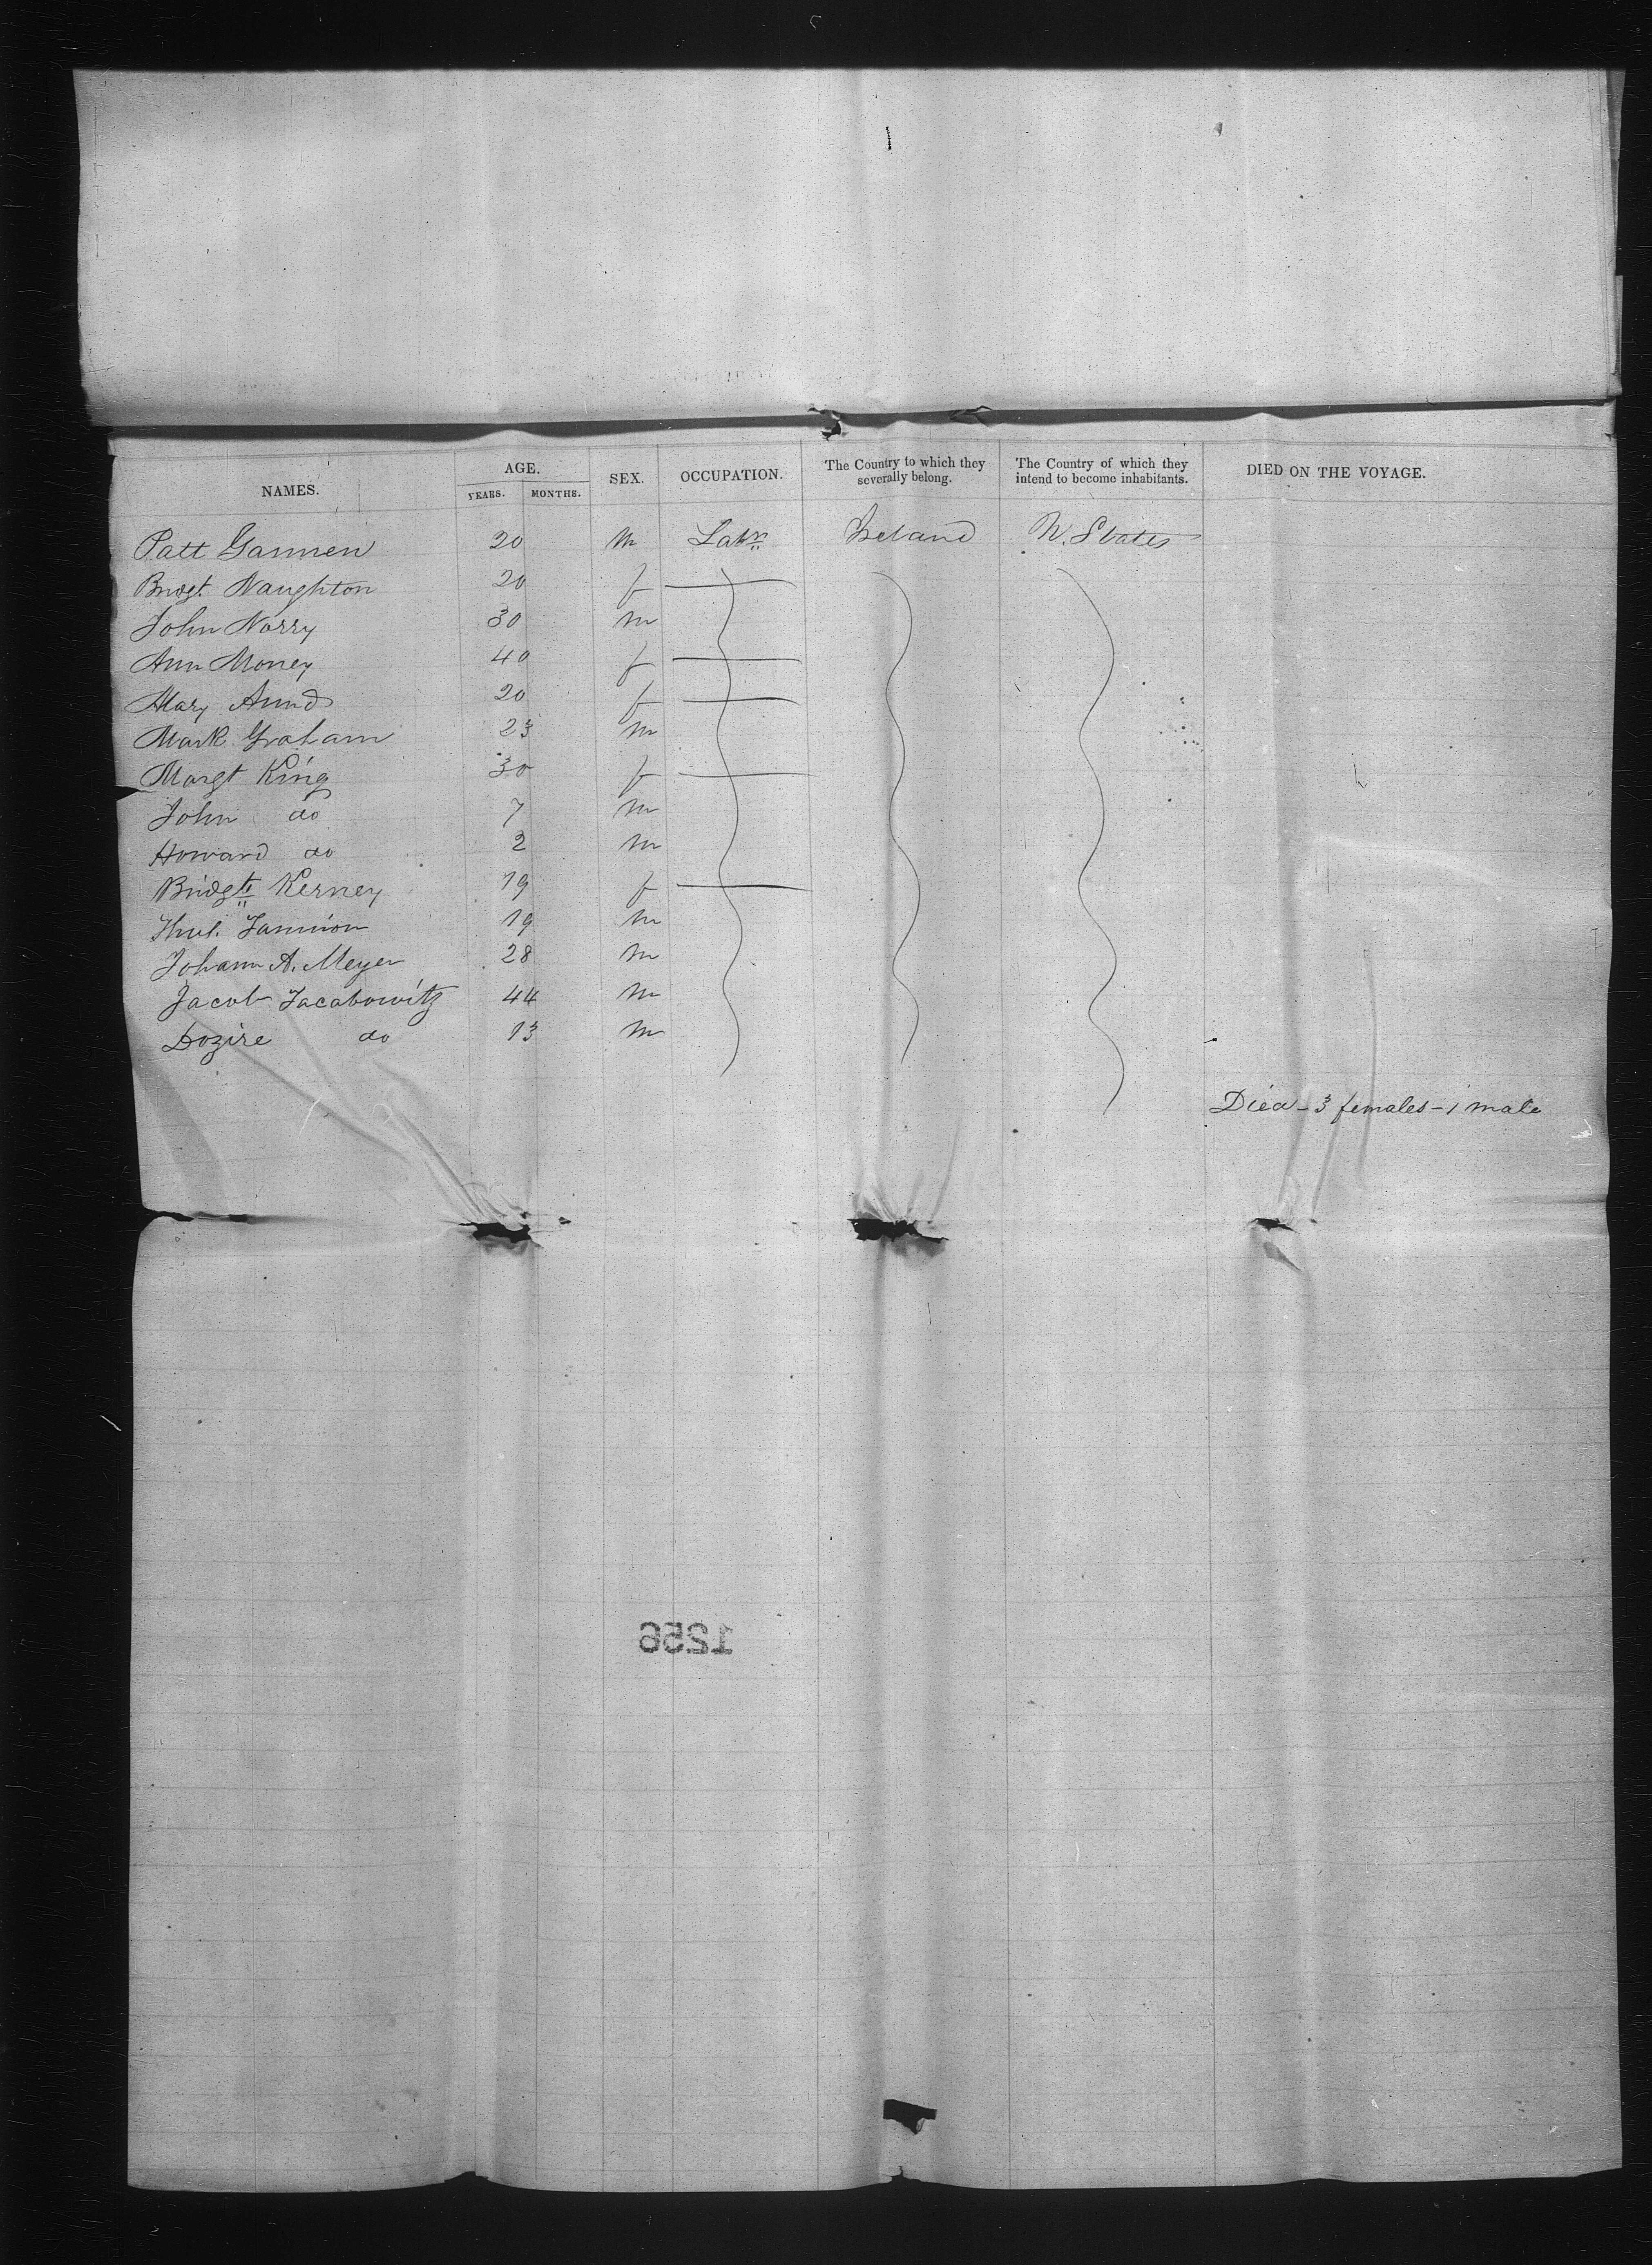 NAMES. AGE. YEARS. MONTHS. SEX. OCCUPATION. The Country to which they severally belong. The Country of which they intend to become inhabitants. DIED ON THE VOYAGE.
Patt Gannen 20 m Labr Ireland U. States
Bridgt. Naughton 20 f
John Norry 30 m
Ann Money 40 f
Mary 20 f
Mark Graham 23 m
Margt King 30 f
John do 7 m
Howard do 2 m
Bridgt Kerney 19 f
19 m
Johann A. Meyer 28 m
Jacob Jacabowitz 44 m
Dozire do 13 m
Died - 3 females - 1 male
1256